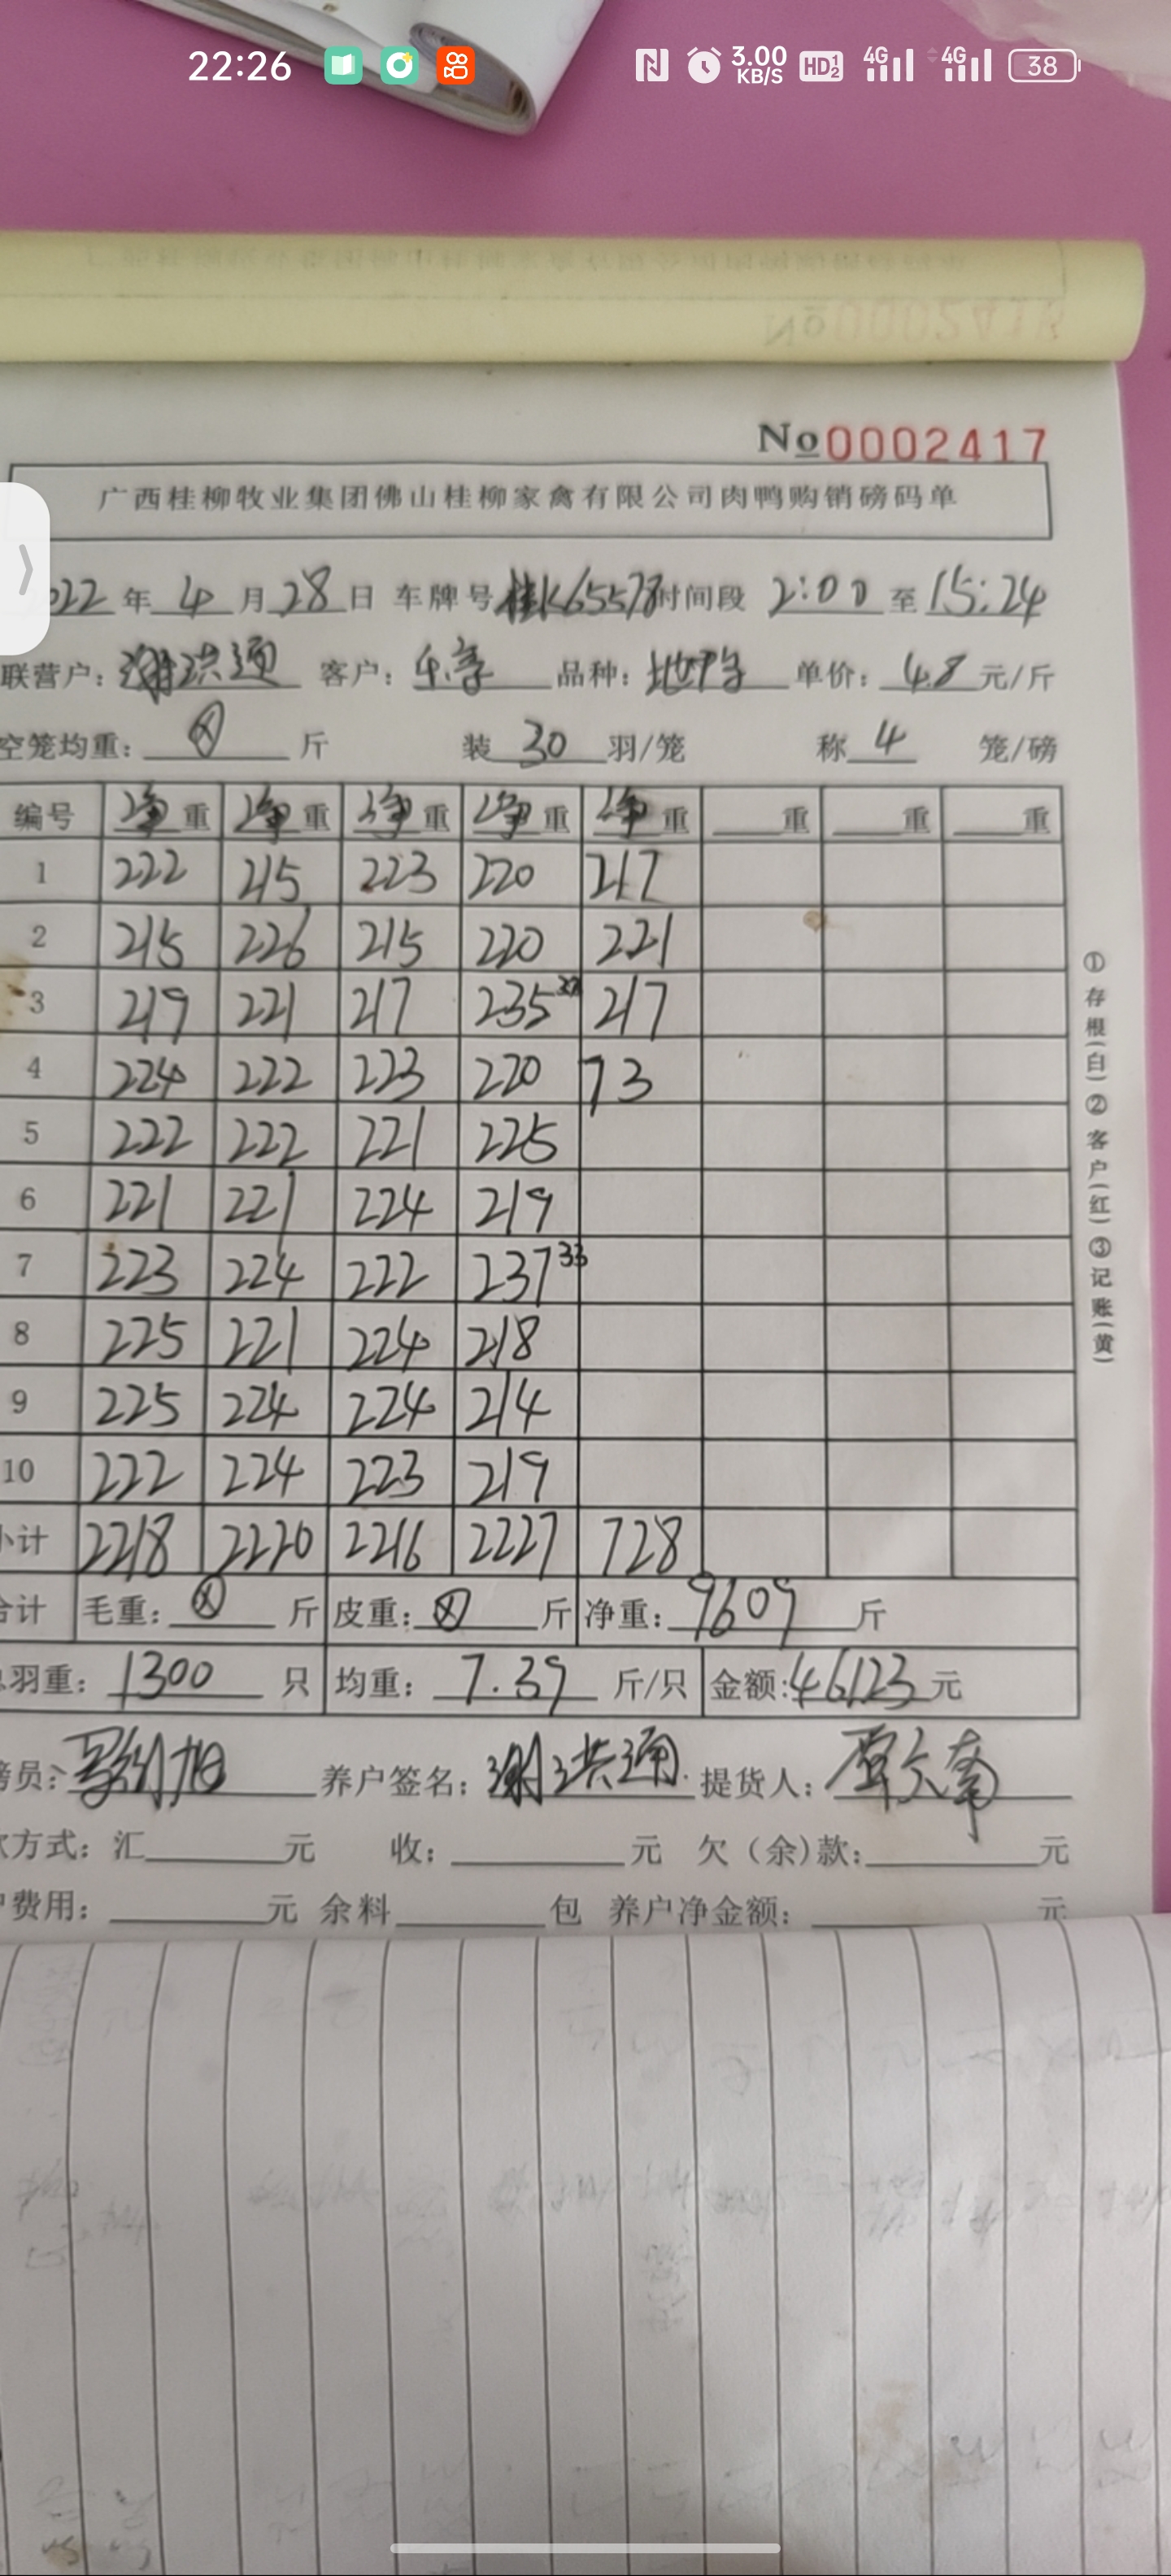 22:26 3.00 KB/S HD 4G 4G 38
No 0002417
广西桂柳牧业集团佛山桂柳家禽有限公司肉鸭购销磅码单
022年4月28日 车牌号桂K65578时间段 2:00至15:24
联营户:谢洪通 客户: 品种: 单价:4.8元/斤
空笼均重: 斤 装30羽/笼 称4笼/磅
编号 净重 净重 净重 净重 净重 重 重 重
1 222 215 223 220 217
2 215 226 215 220 221
3 219 221 217 235 217
4 224 222 223 220 73
5 222 222 221 225
6 221 221 224 219
7 223 224 222 237 33
8 225 221 224 218
9 225 224 224 214
10 222 224 223 219
小计 2218 2220 2216 2227 728
合计 毛重: 斤 皮重: 斤 净重:9609斤
羽重:1300只 均重:7.39斤/只 金额:46123元
磅员: 养户签名:谢洪通 提货人:
款方式:汇 元 收: 元 欠(余)款: 元
户费用: 元 余料 包 养户净金额: 元
①存根(白)②客户(红)③记账(黄)